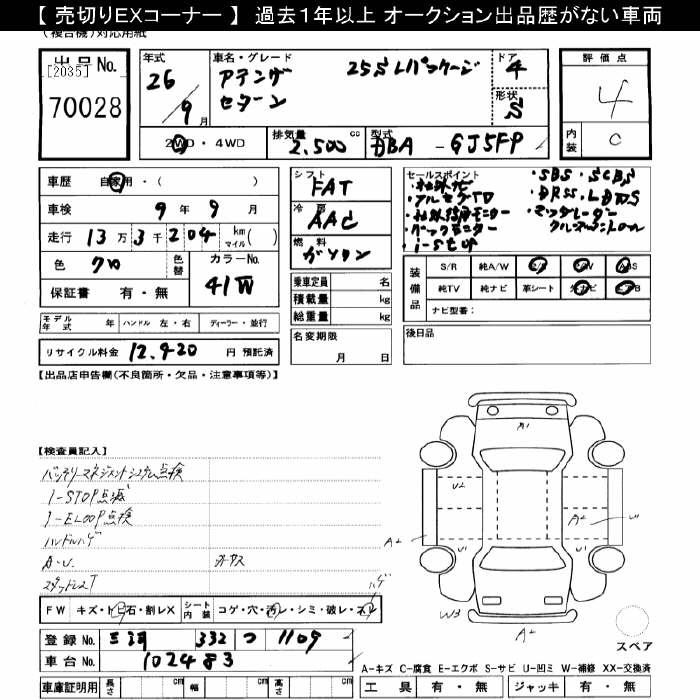 【 売切りEXコーナー 】 過去1年以上 オークション出品歴がない車両
(複合機)対応用紙
出品 No.
[2035]
70028
年式
26
9 月
車名・グレード
アテンザ 25S Lパッケージ
セダン
ドア
4
形状
S
2WD ・ 4WD
排気量
2.500 cc
型式
DBA - GJ5FP
評価点
4
内装
C
車歴 自家用 ・( )
車検 9 年 9 月
走行 13 万 3 千 204 km マイル ( )
色 クロ 色替 カラーNo.
41W
保証書 有 ・ 無
シフト
FAT
冷房
AAC
燃料
ガソリン
乗車定員 名
積載量 kg
総重量 kg
名変期限
月 日
セールスポイント
・社外ナビ
・フルセグTD
・バックモニター
・i-STOP
・SBS ・SCBS
・レーダー
クルーズコントロール
装備品
S/R 純A/W P/S P/W ABS
純TV 純ナビ 革シート 外ナビ エアB
ナビ型番:
後日品
モデル年式 年 ハンドル 左・右 ディーラー・並行
リサイクル料金 12.920 円 預託済
【出品店申告欄(不良箇所・欠品・注意事項等)】
【検査員記入】
バッテリーマネジメントシステム点検
i-STOP点滅
i-ELOOP点検
ハンドルハゲ
A・U.
スタッドレスT
ハゲ
FW キズ・トビ石・割レX シート内装 コゲ・穴・汚レ・シミ・破レ・スレ
登録 No. 三河 332 つ 1109
車台 No. 102483
車庫証明用 長さ cm 幅 cm 高さ cm
A1
U2
A2
U1
A2
U1
U1
W3
A2
スペア
A-キズ C-腐食 E-エクボ S-サビ U-凹ミ W-補修 XX-交換済
工具 有 ・ 無 ジャッキ 有 ・ 無